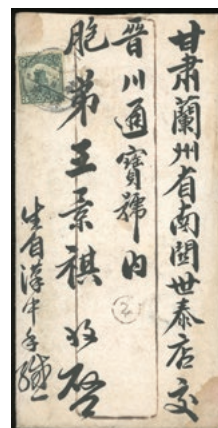 甘肅蘭州省南關世泰店交
晉川通寶號內
胞弟王景祺收啓
生自漢中手緘